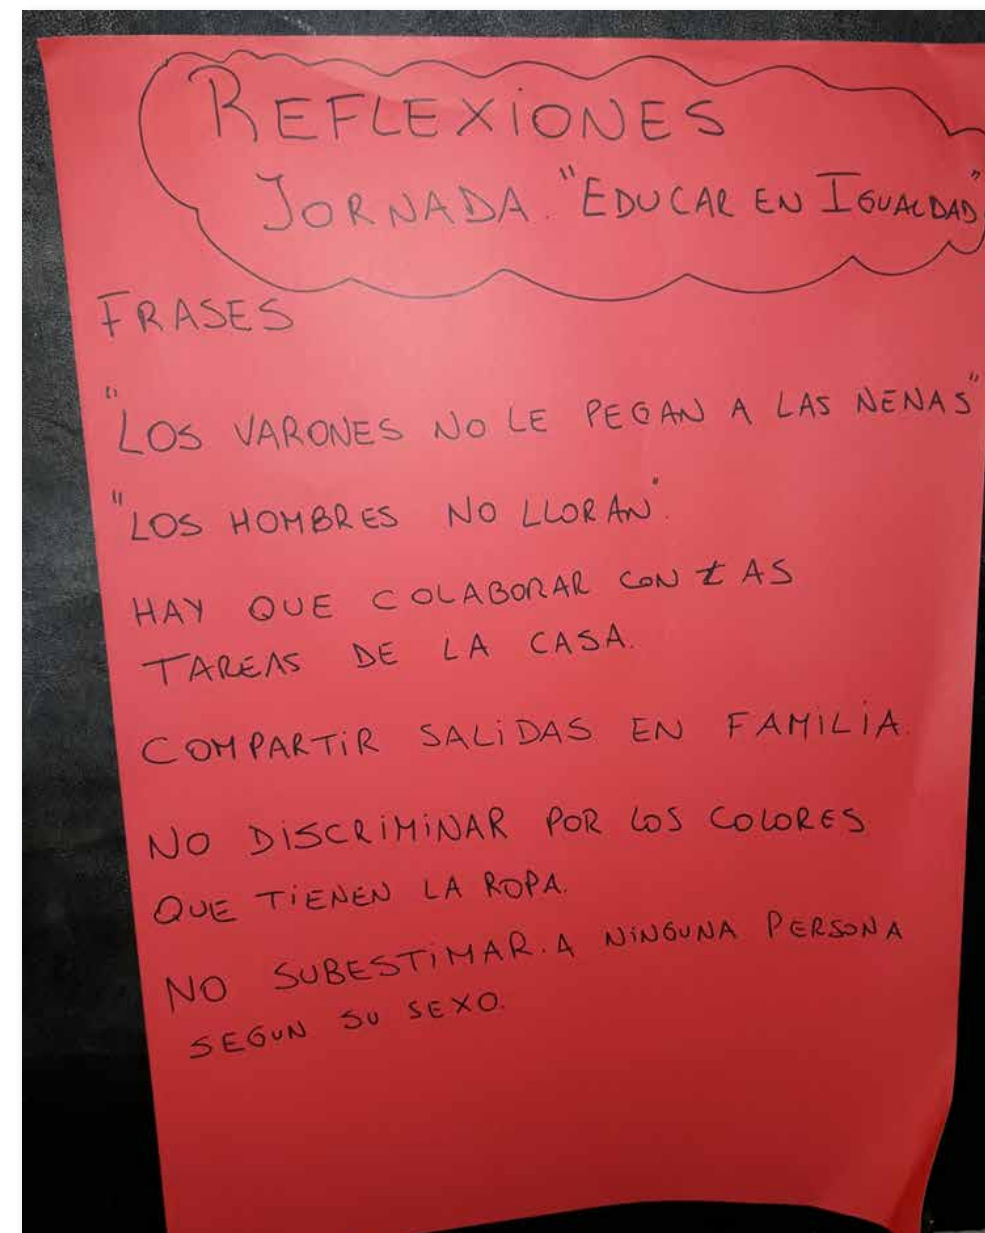 REFLEXIONES
JORNADA. "EDUCAR EN IGUALDAD"
FRASES
"LOS VARONES NO LE PEGAN A LAS NENAS"
"LOS HOMBRES NO LLORAN".
HAY QUE COLABORAR CON LAS
TAREAS DE LA CASA.
COMPARTIR SALIDAS EN FAMILIA.
NO DISCRIMINAR POR LOS COLORES
QUE TIENEN LA ROPA.
NO SUBESTIMAR. A NINGUNA PERSONA
SEGUN SU SEXO.